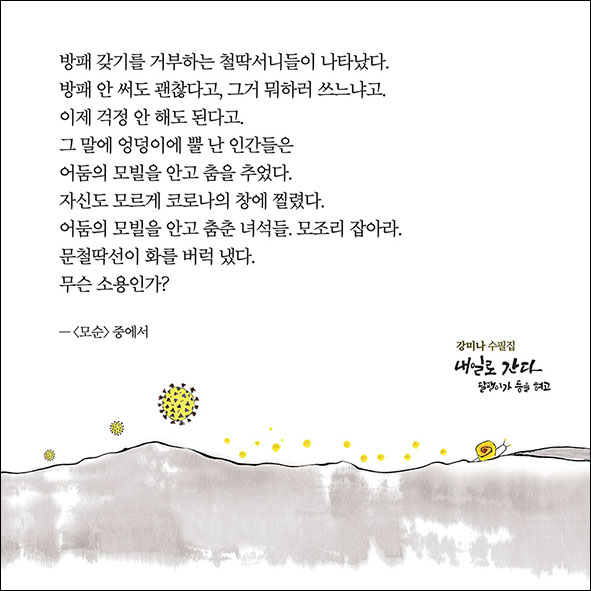 방패 갖기를 거부하는 철딱서니들이 나타났다.
방패 안 써도 괜찮다고, 그거 뭐하러 쓰느냐고.
이제 걱정 안 해도 된다고.
그 말에 엉덩이에 뿔 난 인간들은
어둠의 모빌을 안고 춤을 추었다.
자신도 모르게 코로나의 창에 찔렸다.
어둠의 모빌을 안고 춤춘 녀석들. 모조리 잡아라.
문철딱선이 화를 버럭 냈다.
무슨 소용인가?
─ 〈모순〉 중에서
강미나 수필집
내일로 간다
달팽이가 등을 켜고